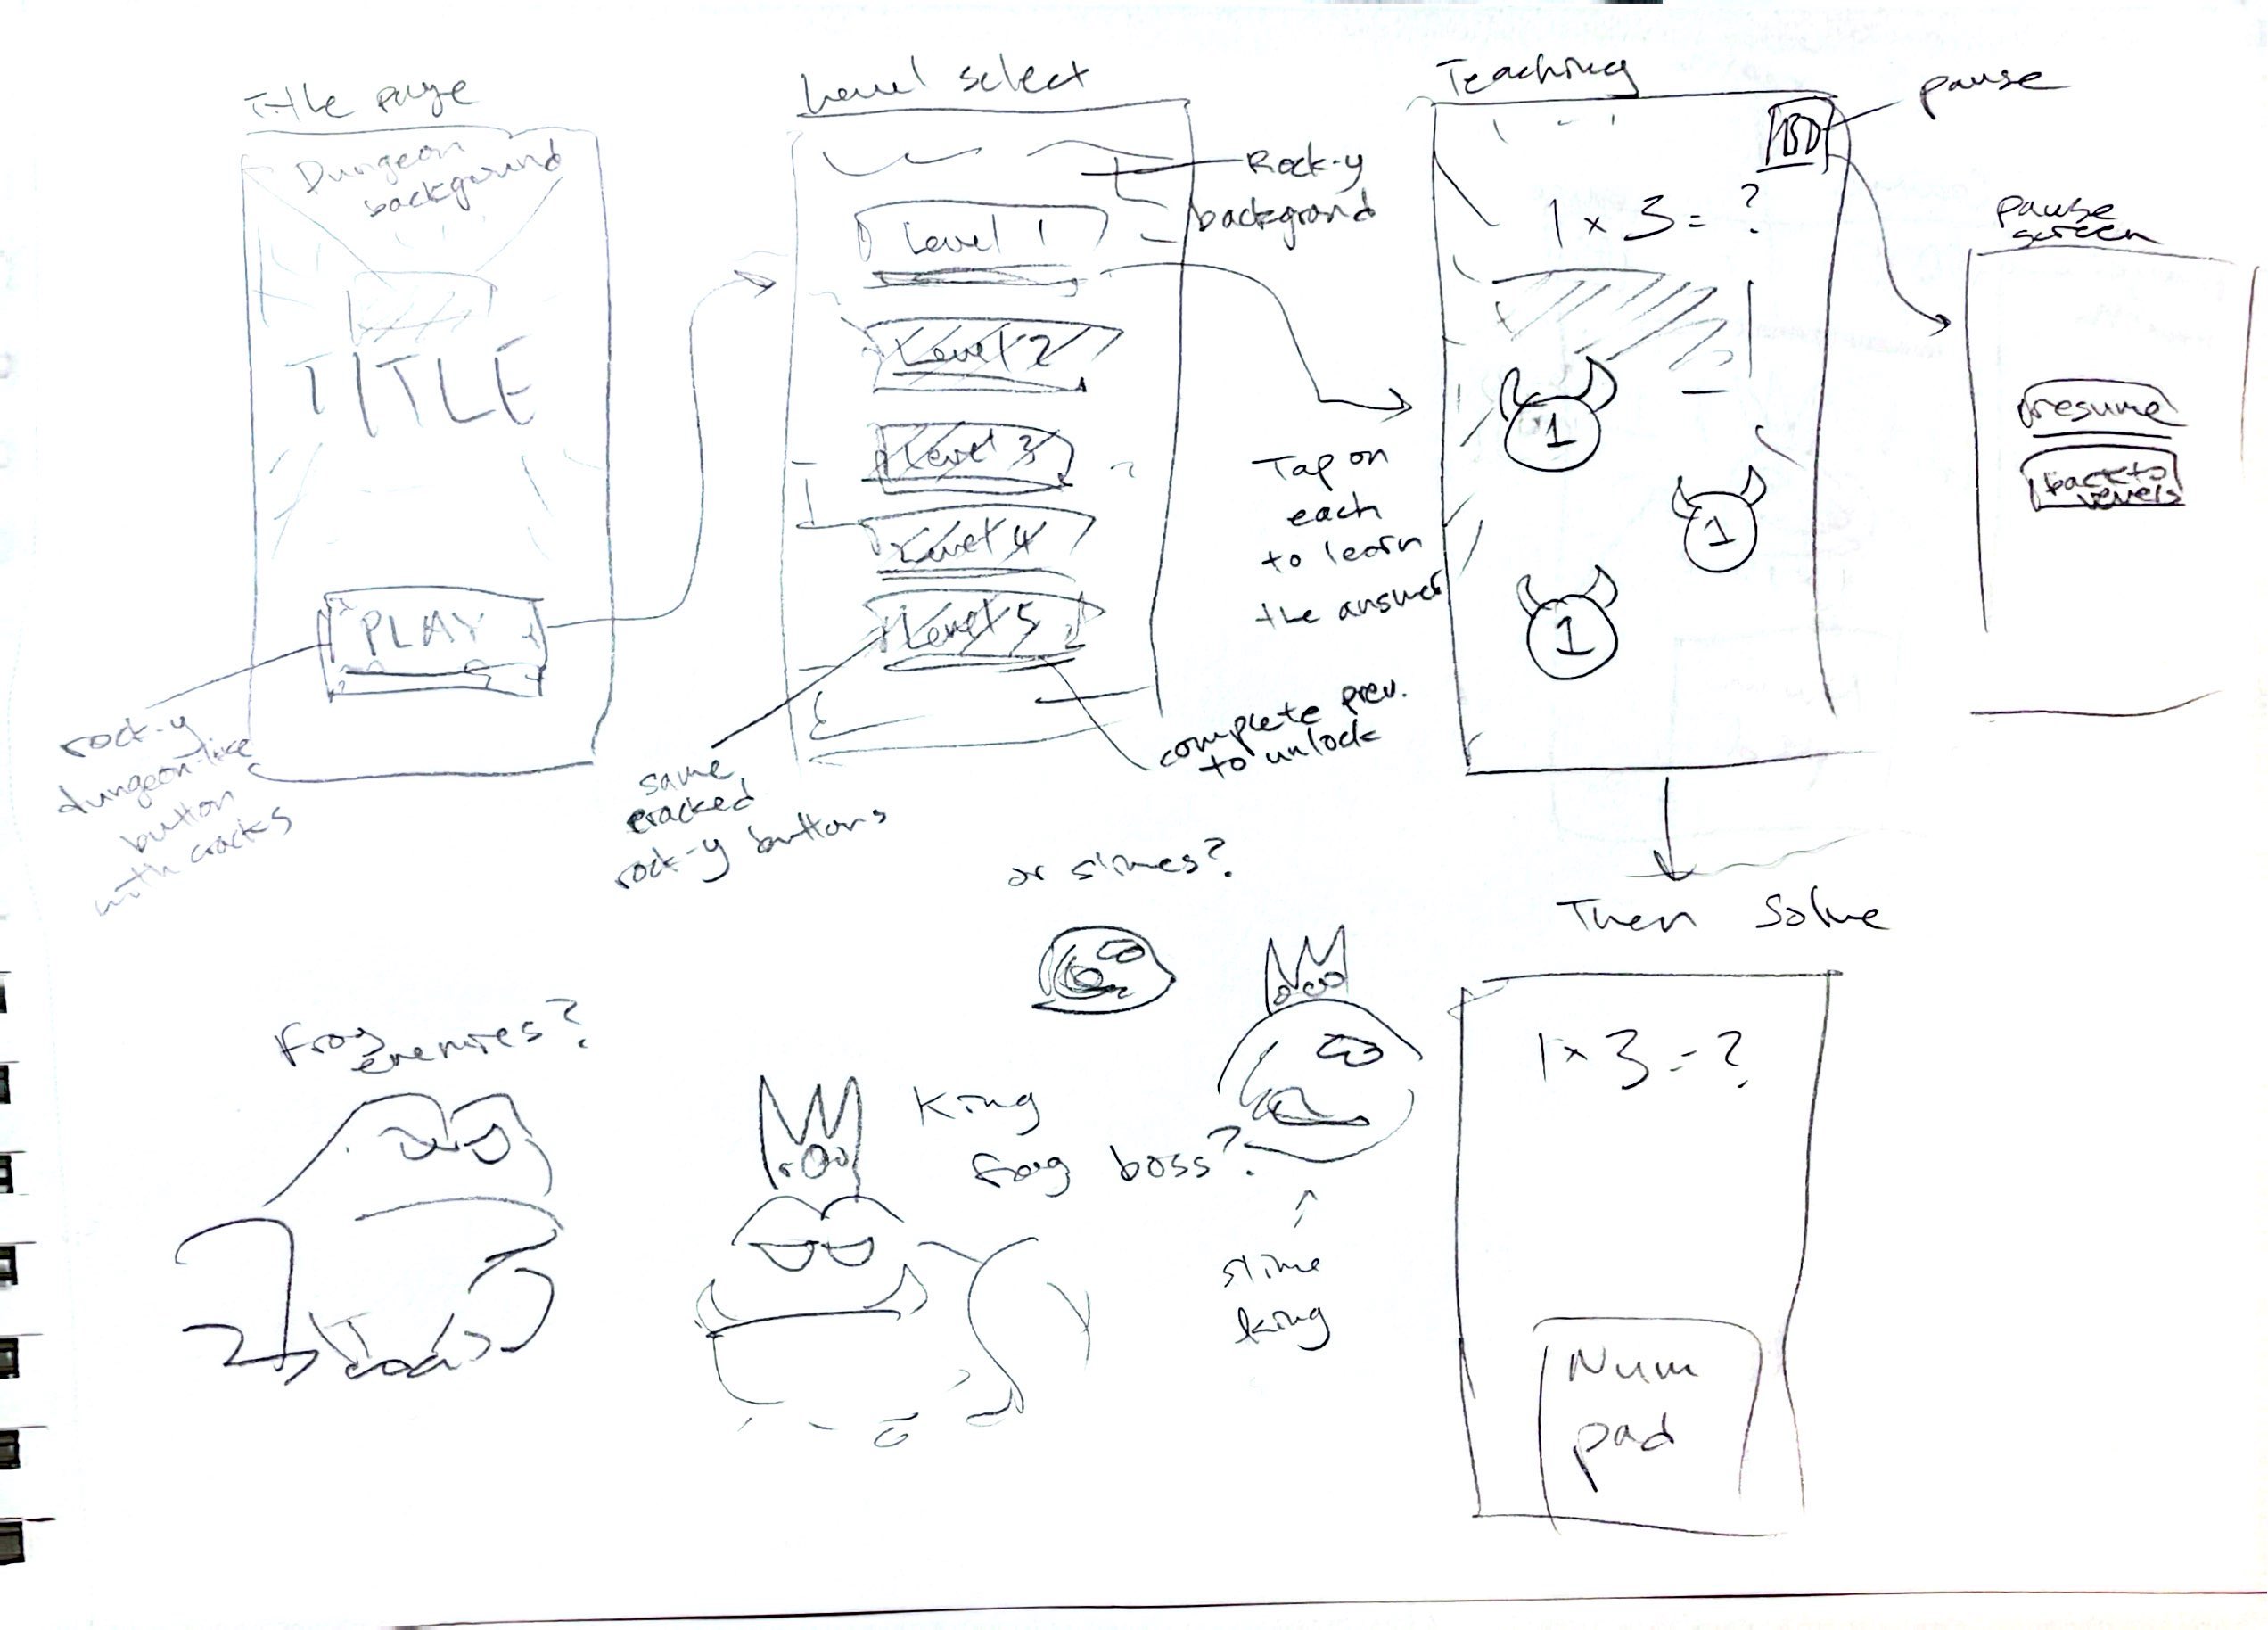 Title page
Dungeon
background
TITLE
PLAY
rock-y
dungeon-like
button
with cracks
Level select
Rock-y
background
Level 1
Level 2
Level 3
Level 4
Level 5
same
cracked
rock-y buttons
complete prev.
to unlock
Teaching
pause
1 x 3 = ?
1
1
1
Tap on
each
to learn
the answer
pause
screen
resume
back to
levels
Then Solve
1 x 3 = ?
Num
pad
or slimes?
Frog
enemies?
King
frog boss?
slime
king